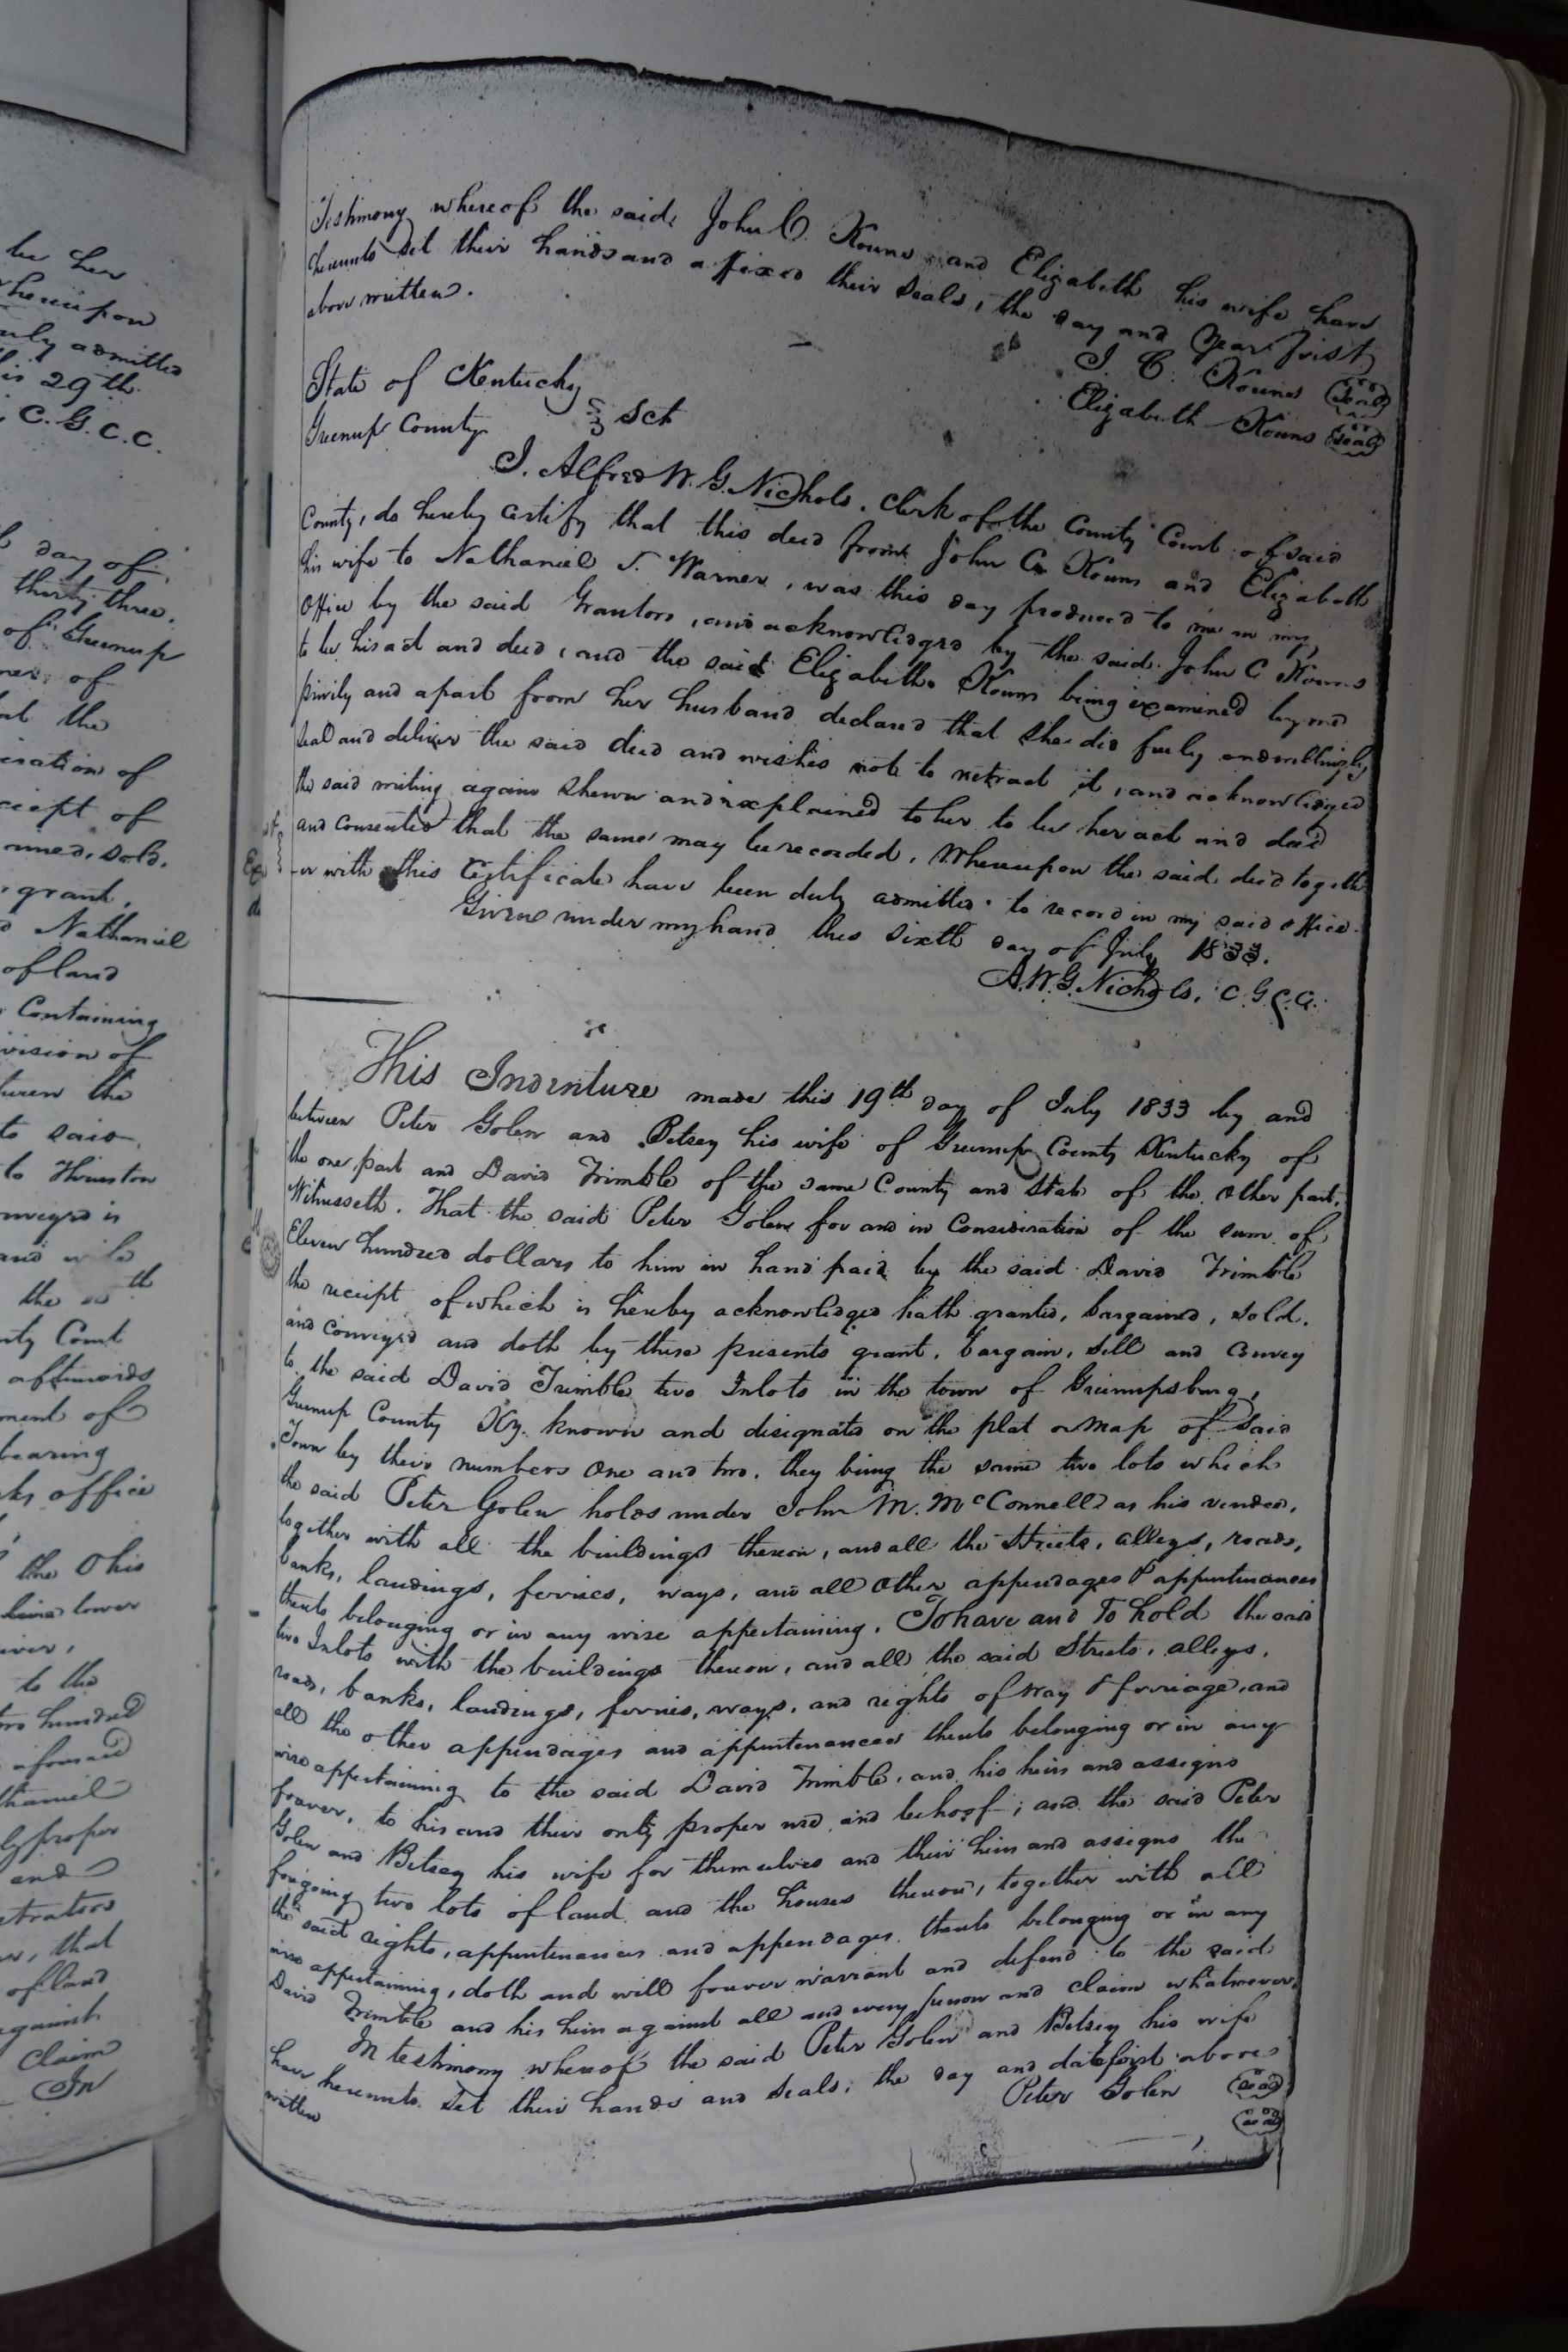 be her
whereupon
duly admitted
this 29th
C. G. C. C.
day of
thirty three.
of Greenup
of
the
consideration of
receipt of
sold.
grant,
Nathaniel
of land
Containing
division of
the
to said
to Thurston
conveyed is
and
the th
County Court
afterwards
of
bearing
office
the Ohio
lower
river,
to the
two hundred
aforesaid
Nathaniel
proper
and
that
of land
against
Claim
In
Testimony whereof the said John C. Kouns and Elizabeth his wife have
hereunto set their hands and affixed their seals, the day and year first
above written.
J. C. Kouns (seal)
Elizabeth Kouns (seal)
State of Kentucky
Greenup County Sct
I. Alfred W. G. Nichols. Clerk of the County Court of said
County, do hereby certify that this deed from John C. Kouns and Elizabeth
his wife to Nathaniel S. Warner, was this day produced to me in my
Office by the said Grantors, and acknowledged by the said John C Kouns
to be his act and deed, and the said Elizabeth Kouns being examined by me
privily and apart from her husband declared that she did freely and willingly
seal and deliver the said deed and wishes not to retract it, and acknowledged
the said writing again shewn and explained to her to be her act and deed
and consented that the same may be recorded. Whereupon the said deed togeth
-er with this Certificate have been duly admitted to record in my said office.
Given under my hand this sixth day of July 1833.
A. W. G. Nichols, C. G. C. C.
This Indenture made this 19th day of July 1833 by and
between Peter Golen and Betsey his wife of Greenup County Kentucky of
the one part and David Trimble of the same County and State of the other part,
Witnesseth. That the said Peter Golen for and in Consideration of the sum of
Eleven hundred dollars to him in hand paid by the said David Trimble
the receipt of which is hereby acknowledged hath granted, bargained, sold.
and conveyed and doth by these presents grant, bargain, sell and convey
to the said David Trimble two Inlots in the town of Greenupsburg,
Greenup County Ky. known and designated on the plat or map of said
Town by their numbers One and two, they being the same two lots which
the said Peter Golen holds under John M. McConnell as his vendee,
together with all the buildings thereon, and all the Streets, alleys, roads,
banks, landings, ferries, ways, and all other appendages & appurtenances
thereto belonging or in any wise appertaining. To have and To hold the said
two Inlots with the buildings thereon, and all the said Streets, alleys,
roads, banks, landings, ferries, ways, and rights of way & ferriage, and
all the other appendages and appurtenances thereto belonging or in any
wise appertaining to the said David Trimble, and his heirs and assigns
forever, to his and their only proper use and behoof; and the said Peter
Golen and Betsey his wife for themselves and their heirs and assigns the
foregoing two lots of land and the houses thereon, together with all
the said rights, appurtenances and appendages thereto belonging or in any
wise appertaining, doth and will forever warrant and defend to the said
David Trimble and his heirs against all and every person and claim whatsoever.
In testimony whereof the said Peter Golen and Betsey his wife
have hereunto set their hands and seals, the day and date first above
written Peter Golen (seal)
(seal)